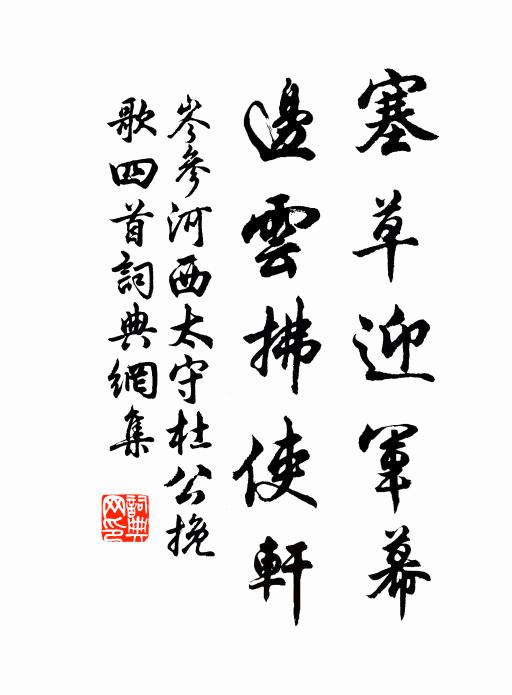 塞草迎軍幕
邊雲拂使軒
岑參河西太守杜公挽
歌四首詞典網集
詞典網印